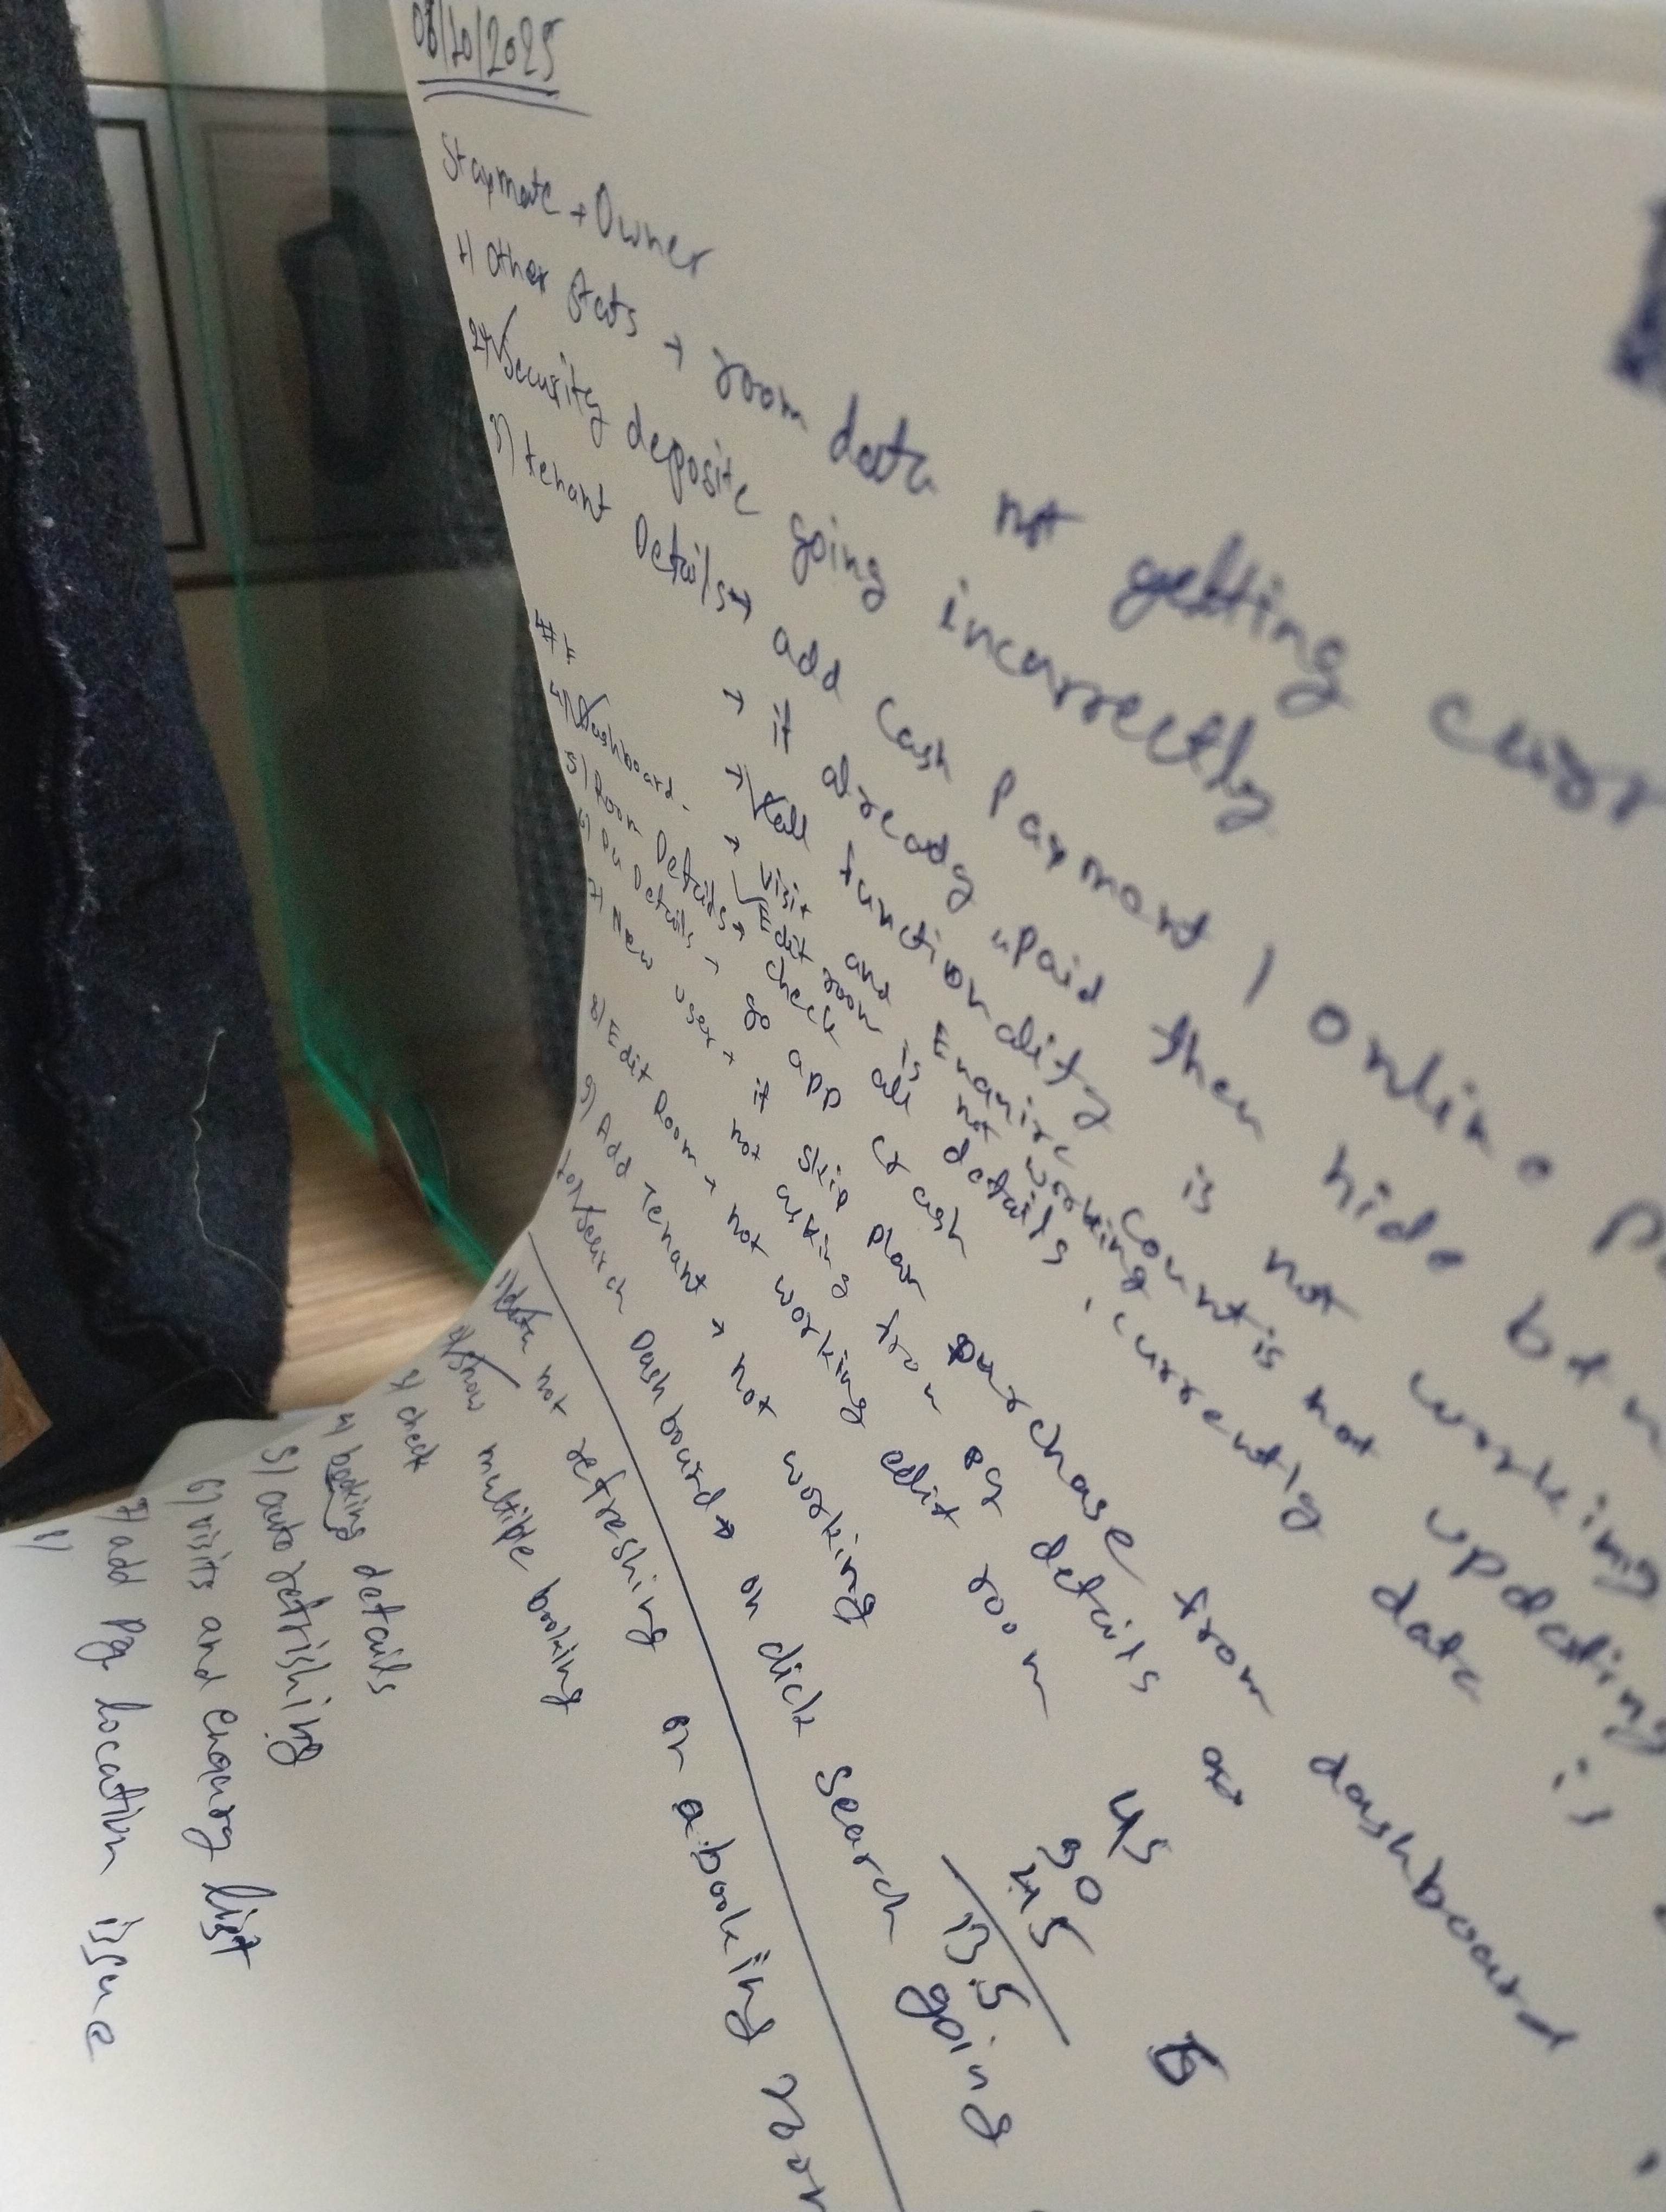 08/10/2025
Staymate + Owner
1) Other Stats → room data not getting
2) Security deposite going incorrectly
3) tenant Details → add cash payment / online
→ it already upaid then hide btn
→ Call functionality is not working
→ visit and Enquire count is not updating
4) Dashboard.
→ Edit room is not working
5) Room Details → check all details, currently data is
6) PG Details → go app cash
7) New user → it skip plan purchase from dashboard
not asking from pg details
8) Edit Room → not working edit room
9) Add tenant → not working
10) Search Dashboard → on click search going
45
90
45
13.5
1) data not refreshing on a booking
2) Show multiple booking
3) check
4) booking details
5) auto refrishing
6) visits and enqury list
7) add Pg location issue
8)